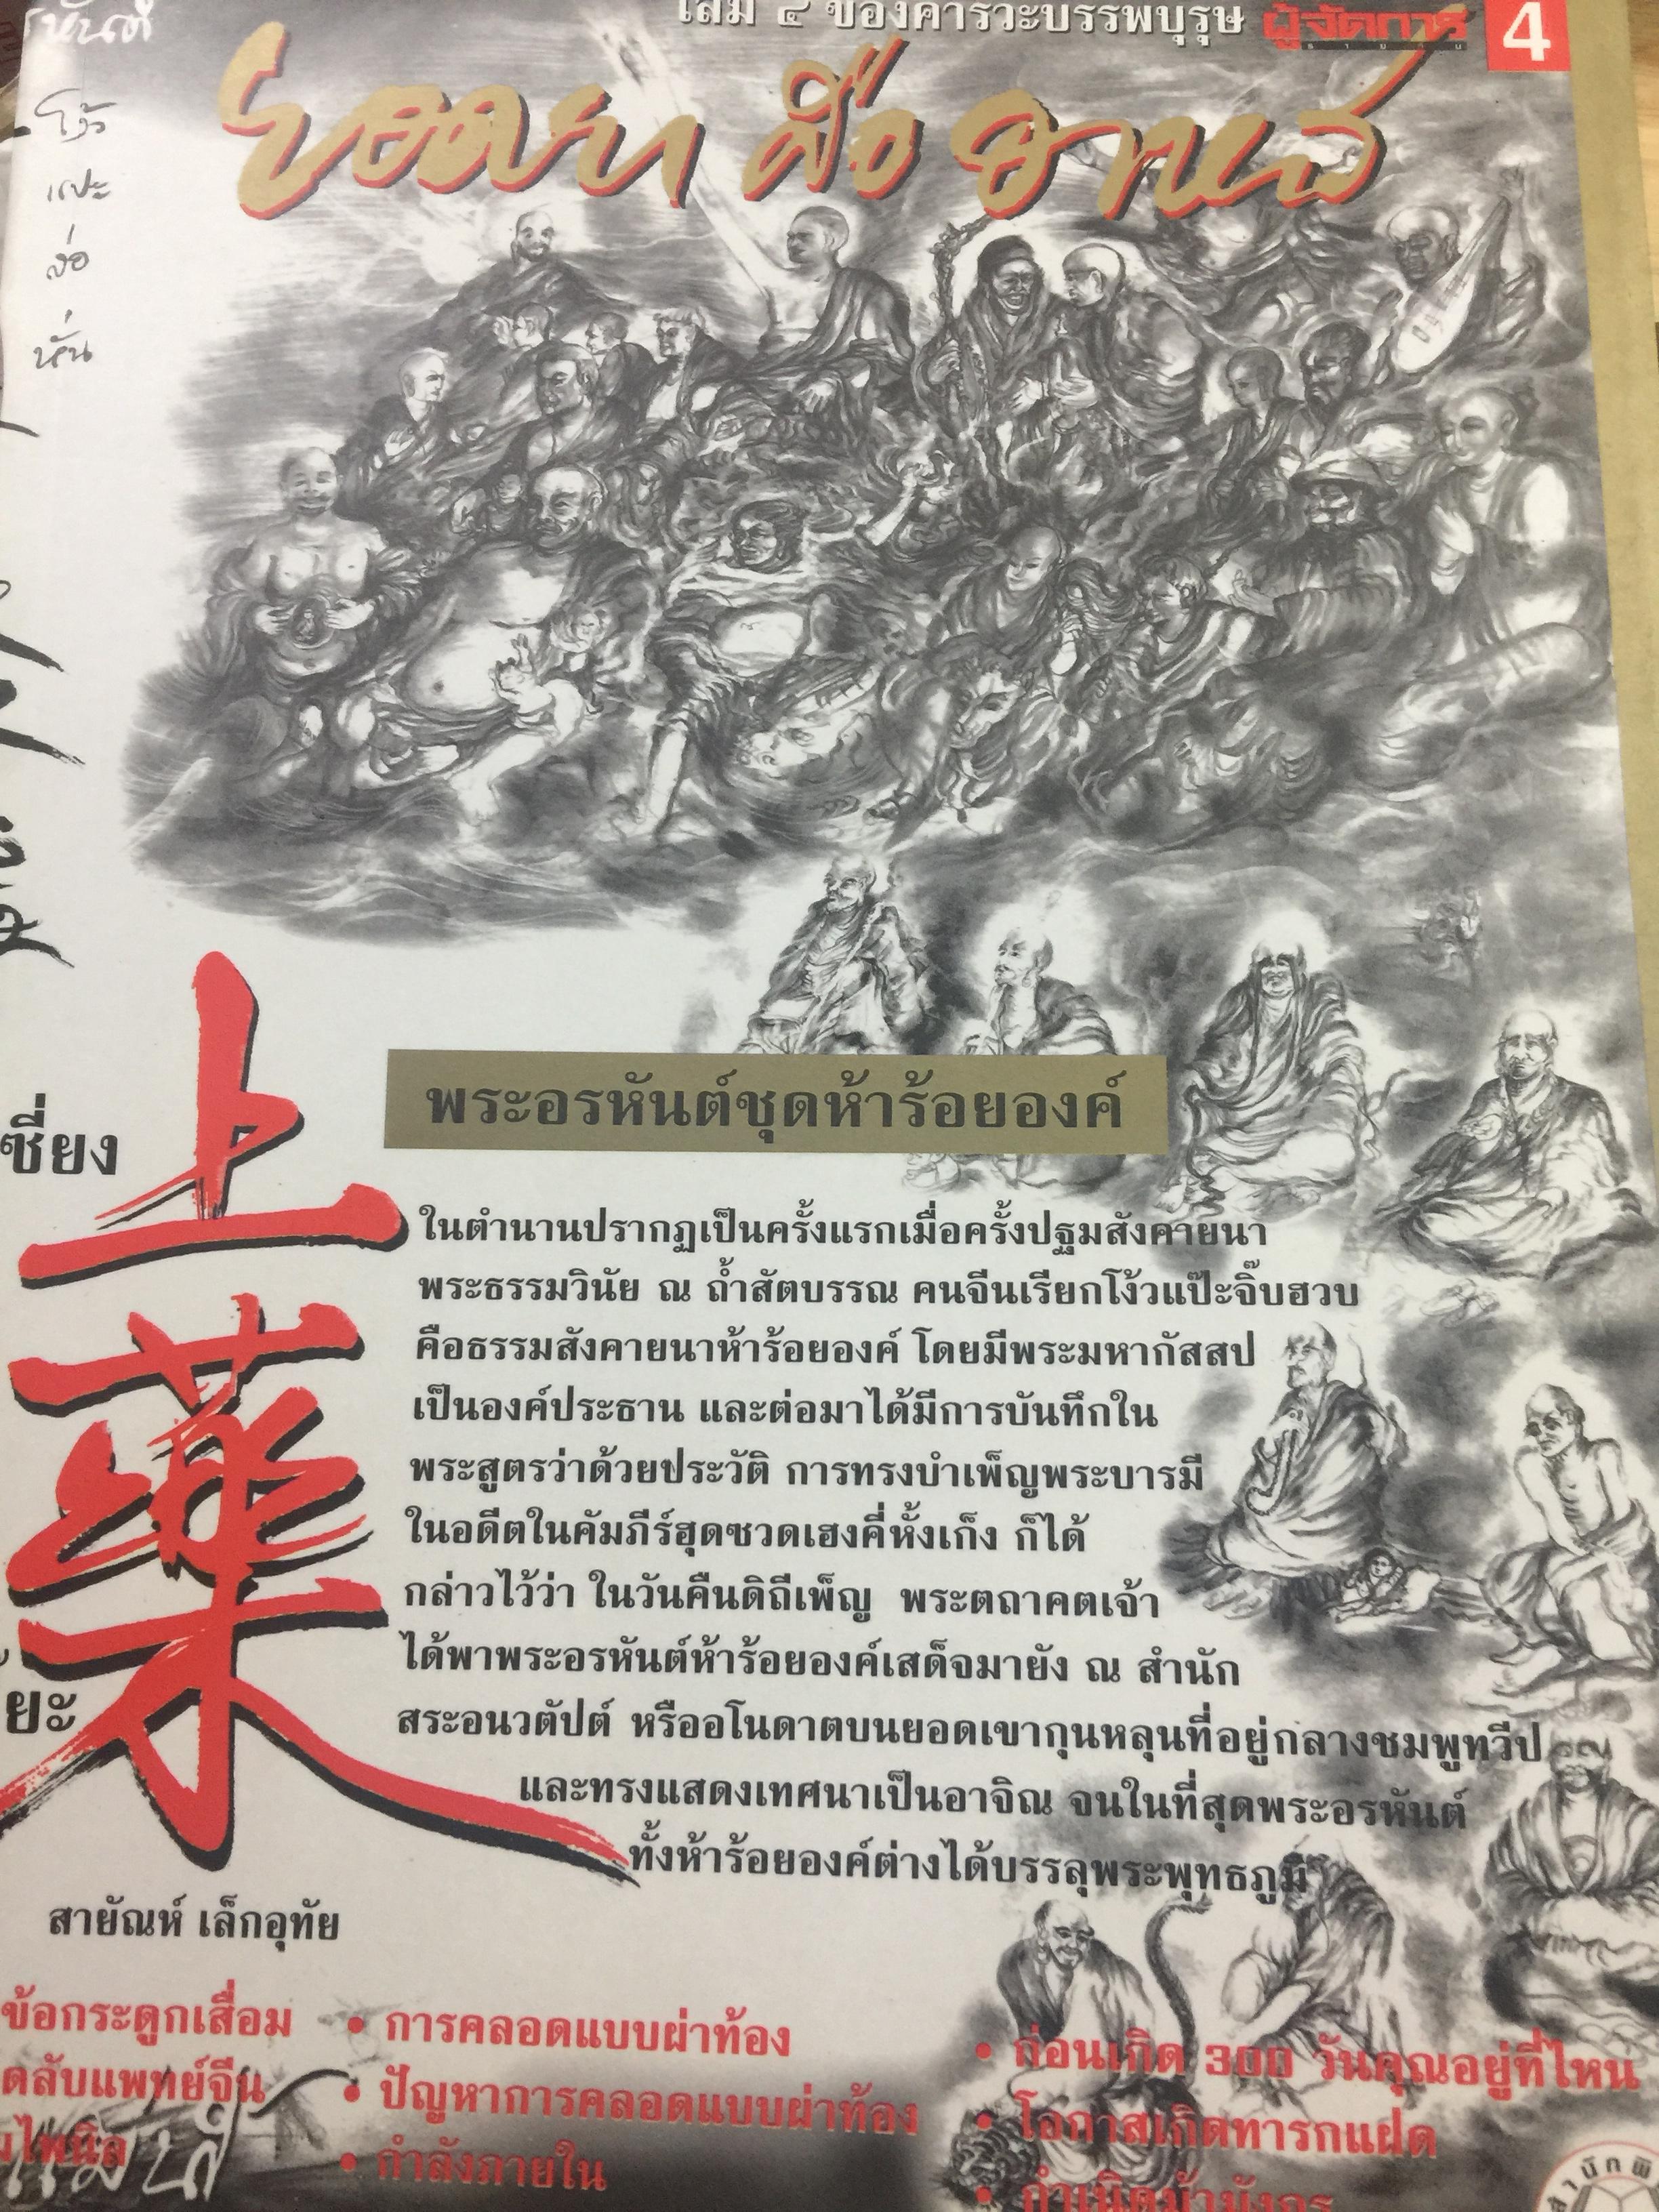 เล่ม ๔ ของคารวะบรรพบุรุษ ผู้จัดการ 4
รายวัน
หันต์
โง้ว
แปะ
ล่อ
หั่น
ยอดยา คือ อาหาร
上
藥
เซี่ยง
พระอรหันต์ชุดห้าร้อยองค์
ในตำนานปรากฏเป็นครั้งแรกเมื่อครั้งปฐมสังคายนา
พระธรรมวินัย ณ ถ้ำสัตบรรณ คนจีนเรียกโง้วแป๊ะจิ๊บฮวบ
คือธรรมสังคายนาห้าร้อยองค์ โดยมีพระมหากัสสป
เป็นองค์ประธาน และต่อมาได้มีการบันทึกใน
พระสูตรว่าด้วยประวัติ การทรงบำเพ็ญพระบารมี
ในอดีตในคัมภีร์ฮุดซวดเฮงคี่หั้งเก็ง ก็ได้
กล่าวไว้ว่า ในวันคืนดิถีเพ็ญ พระตถาคตเจ้า
ได้พาพระอรหันต์ห้าร้อยองค์เสด็จมายัง ณ สำนัก
สระอนวตัปต์ หรืออโนดาตบนยอดเขากุนหลุนที่อยู่กลางชมพูทวีป
และทรงแสดงเทศนาเป็นอาจิณ จนในที่สุดพระอรหันต์
ทั้งห้าร้อยองค์ต่างได้บรรลุพระพุทธภูมิ
ยะ
สายัณห์ เล็กอุทัย
ข้อกระดูกเสื่อม
ดลับแพทย์จีน
• การคลอดแบบผ่าท้อง
• ปัญหาการคลอดแบบผ่าท้อง
• กำลังภายใน
• ก่อนเกิด 300 วันคุณอยู่ที่ไหน
• โอกาสเกิดทารกแฝด
• กำเนิดม้ามังกร
สำนักพิ